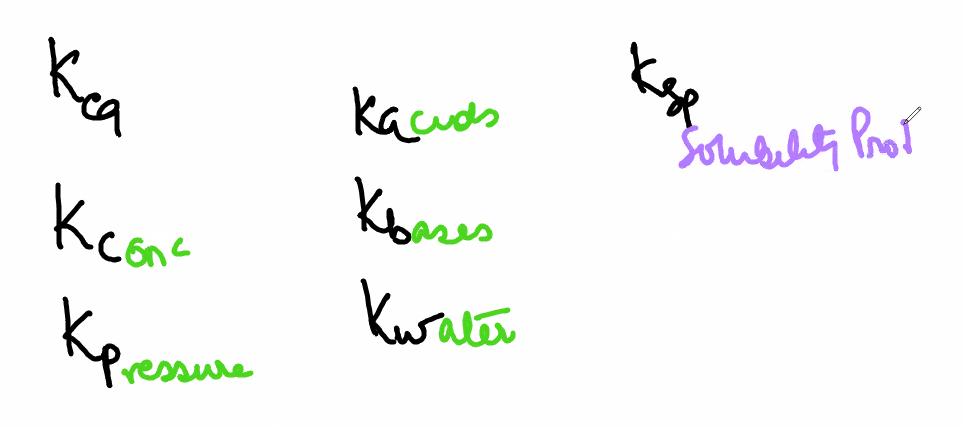 Keq
Kconc
Kpressure
Kacids
Kbases
Kwater
Ksp
Solubility Prod